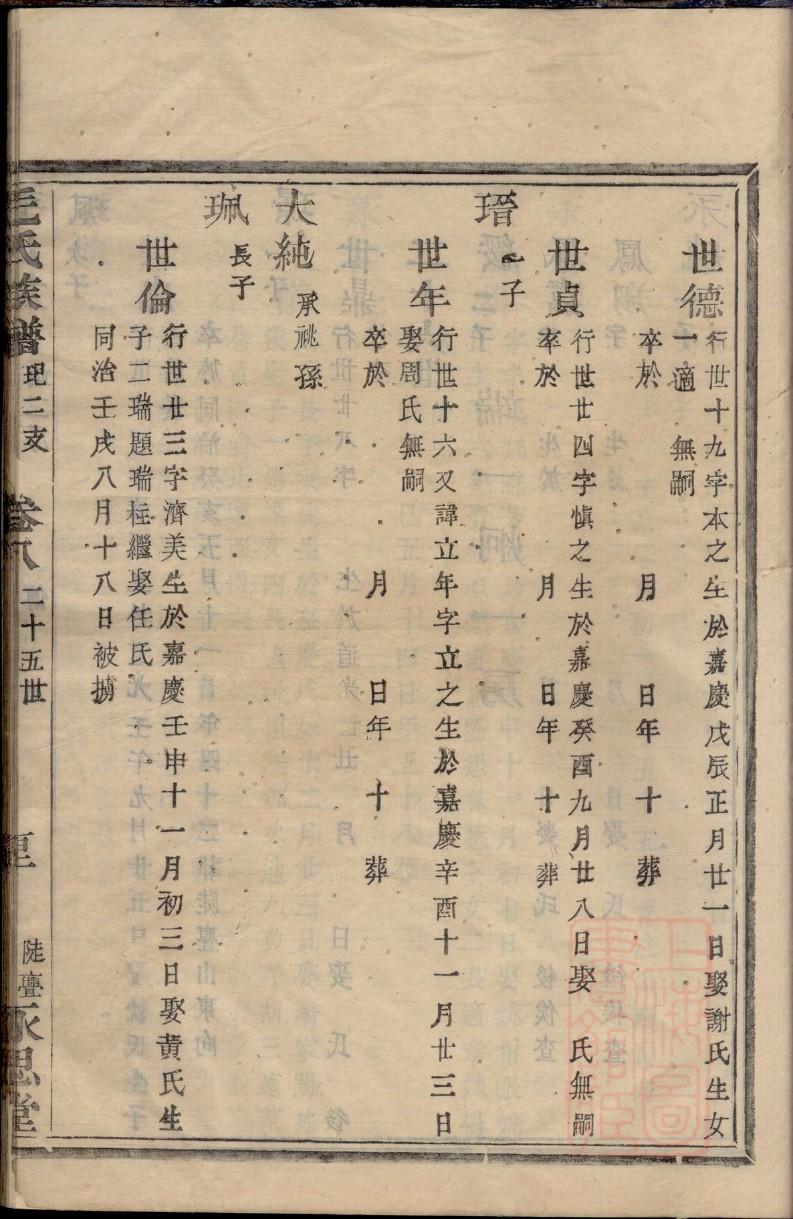 世德行世十九字本之生於嘉慶戊辰正月廿一日娶謝氏生女
一適　無嗣
卒於　月　日年　十　葬
世貞行世廿四字慎之生於嘉慶癸酉九月廿八日娶　氏無嗣
卒於　月　日年　十　葬
瑨之子
世年行世十六又諱立年字立之生於嘉慶辛酉十一月廿三日
娶周氏無嗣
卒於　月　日年　十　葬
大純承祧孫
珮長子
世倫行世廿三字濟美生於嘉慶壬申十一月初三日娶黄氏生
子二瑞題瑞柱繼娶任氏
同治壬戌八月十八日被擄
毛氏族譜　玘二支　卷八　二十五世　陡亹永思堂